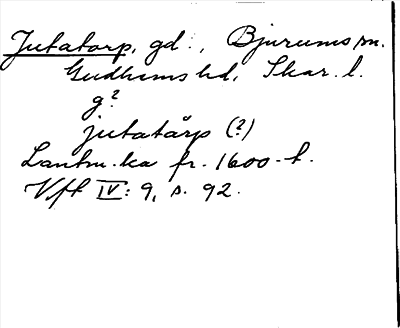 Jutatorp, gd., Bjurums sn.
Gudhems hd, Skar. l.
g?
jutatårp (?)
Lantm.ka fr. 1600-t.
Vft IV: 9, s. 92.